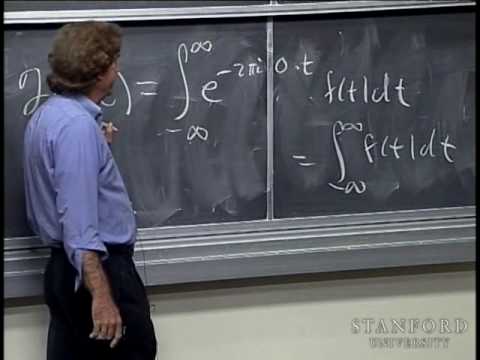 ) = ∫_{-∞}^{∞} e^{-2πi 0·t} f(t)dt
= ∫_{-∞}^{∞} f(t)dt
STANFORD
UNIVERSITY